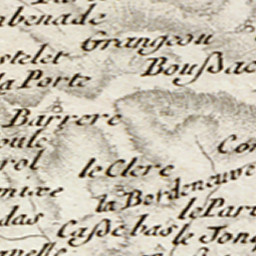 benade
Grangeou
stelet
Boußac
la Porte
Barrere
oule
rol
le Clere
Con
la Bordeneuve
le Par
das
Caßebas
le Jon